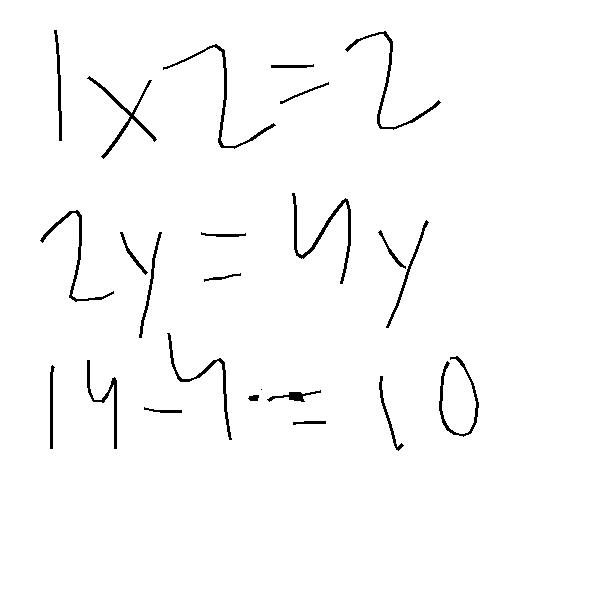 1x2=2
2y=4y
14-4=10